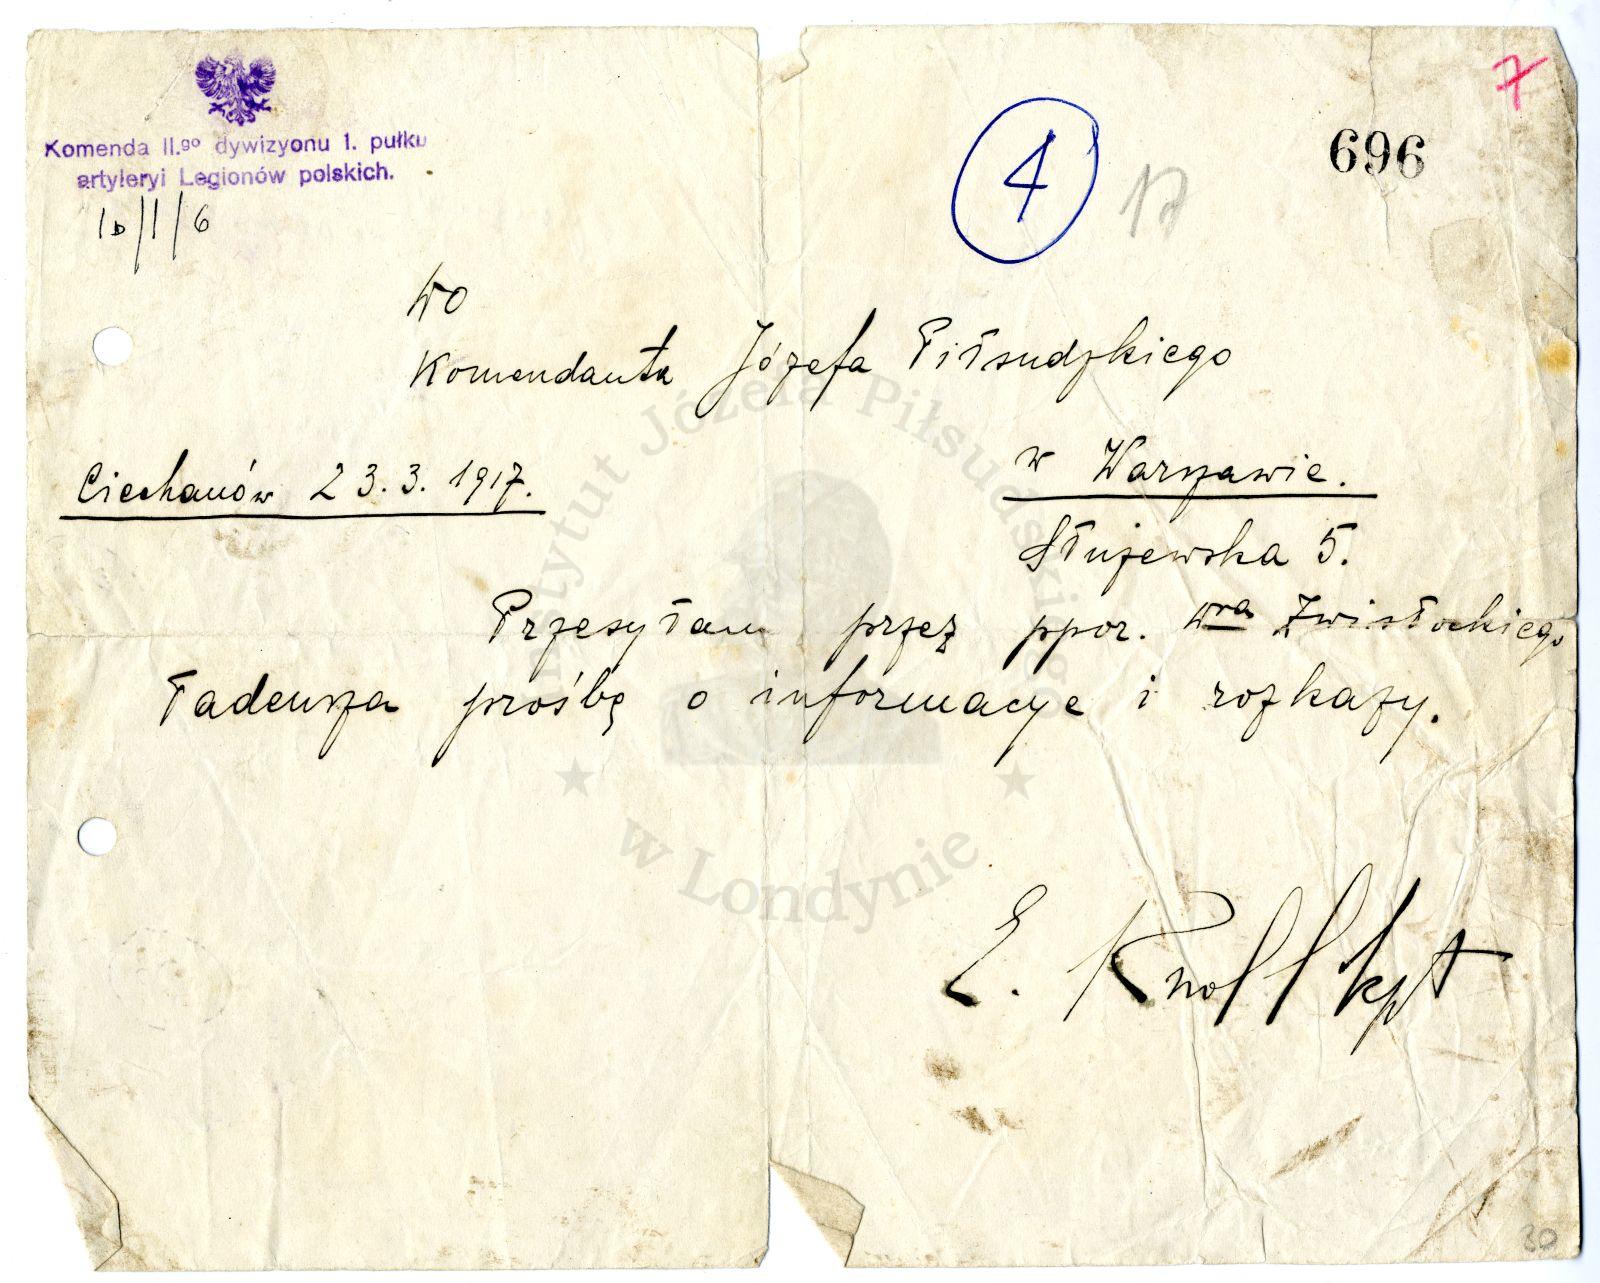 7
696
Komenda II.go dywizyonu 1. pułku
artyleryi Legionów polskich.
4
17
Do
Komendanta Józefa Piłsudzkiego
w Warszawie.
Ciechanów 23.3.1917.
Służewska 5.
Przesyłam przez ppor. Dra Zwisłockiego
Tadeusza prośbę o informacye i rozkazy.
E. Knoll kpt
30
Instytut Józefa Piłsudskiego
w Londynie